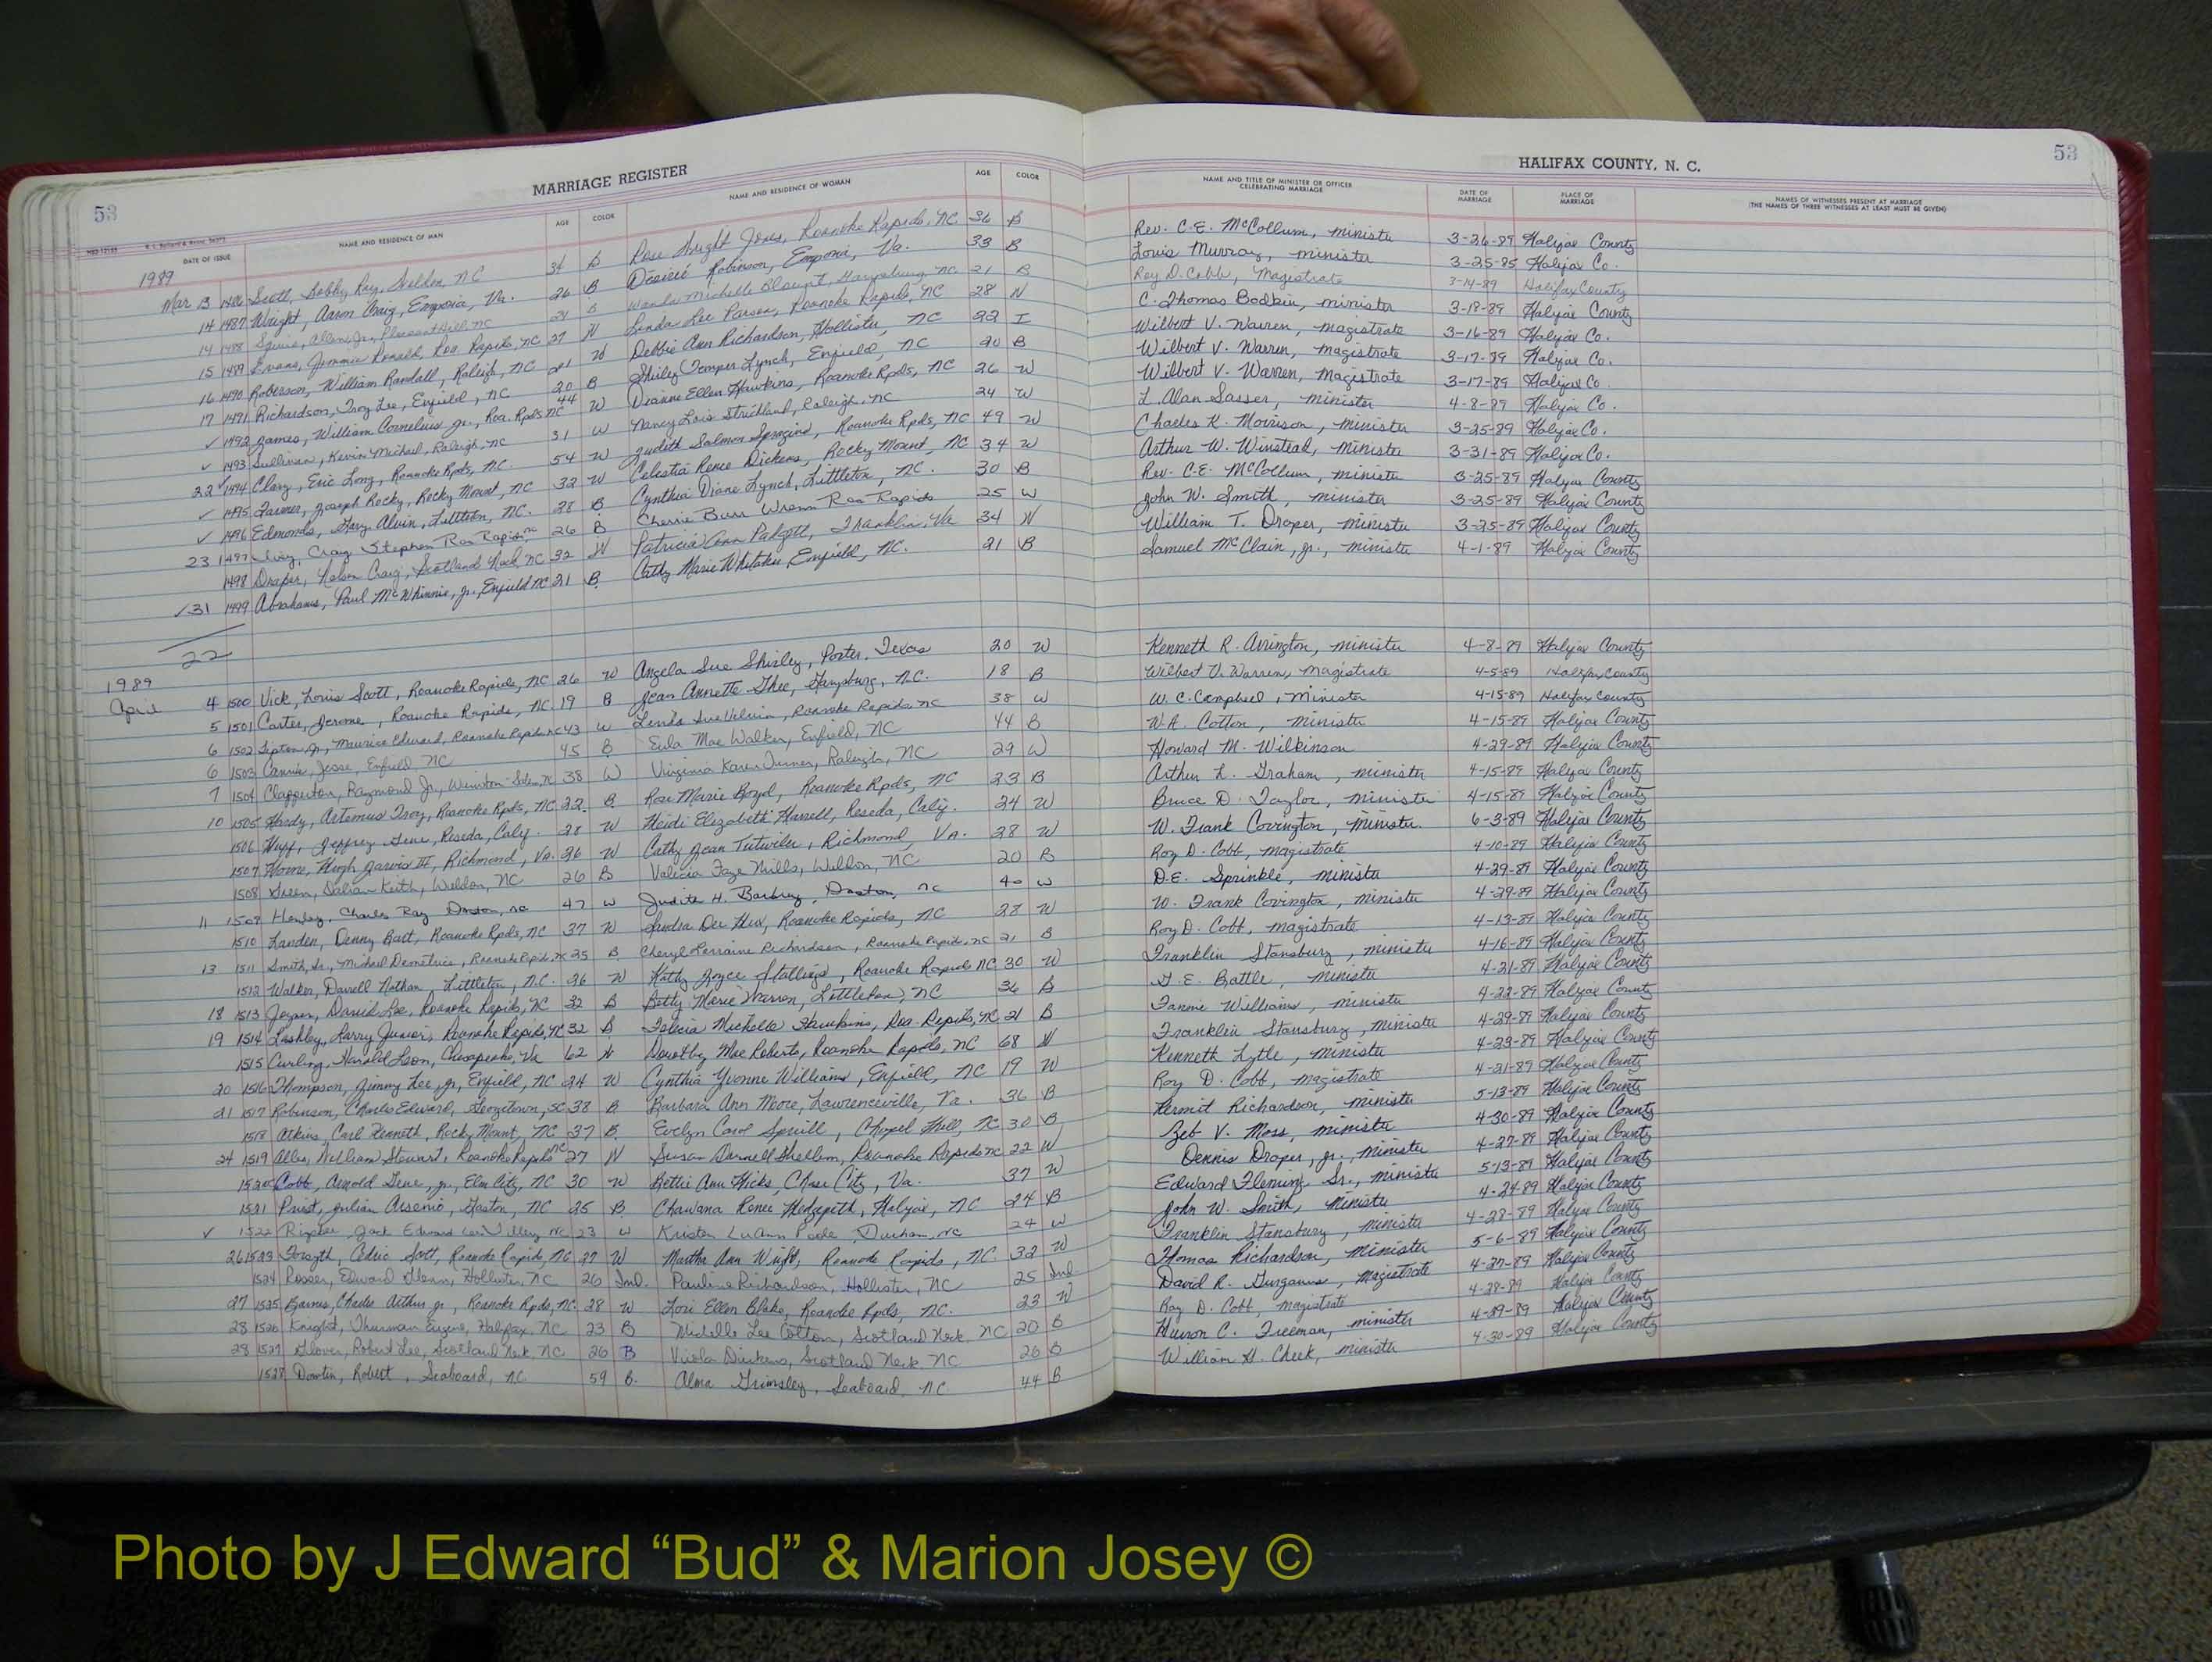 53
MARRIAGE REGISTER
HALIFAX COUNTY, N. C.
53
DATE OF ISSUE NAME AND RESIDENCE OF MAN AGE COLOR NAME AND RESIDENCE OF WOMAN AGE COLOR NAME AND TITLE OF MINISTER OR OFFICER CELEBRATING MARRIAGE DATE OF MARRIAGE PLACE OF MARRIAGE NAMES OF WITNESSES PRESENT AT MARRIAGE (THE NAMES OF THREE WITNESSES AT LEAST MUST BE GIVEN)
1989
Mar 13 1486 Scott, Bobby Ray, Weldon, NC 34 B Rose Wright Jones, Roanoke Rapids, NC 36 B Rev. C.E. McCollum, minister 3-26-89 Halifax County
14 1487 Wright, Aaron Craig, Emporia, Va. 26 B Desireé Robinson, Emporia, Va. 33 B Louis Murray, minister 3-25-85 Halifax Co.
14 1488 Squire, Allen Jr., Pleasant Hill, NC 21 B Wanda Michelle Blount, Garysburg, NC 21 B Roy D. Cobb, Magistrate 3-14-89 Halifax County
15 1489 Evans, Jimmie Ronald, Roa. Rapids, NC 27 W Linda Lee Parson, Roanoke Rapids, NC 28 W C. Thomas Bodkin, minister 3-18-89 Halifax County
16 1490 Roberson, William Randall, Raleigh, NC 21 W Debbie Ann Richardson, Hollister, NC 22 I Wilbert V. Warren, magistrate 3-16-89 Halifax Co.
17 1491 Richardson, Troy Lee, Enfield, NC 20 B Shirley Temper Lynch, Enfield, NC 20 B Wilbert V. Warren, magistrate 3-17-89 Halifax Co.
✓ 1492 James, William Cornelius Jr., Roa. Rpds NC 44 W Dianne Ellen Hawkins, Roanoke Rpds, NC 26 W Wilbert V. Warren, magistrate 3-17-89 Halifax Co.
✓ 1493 Sullivan, Kevin Michael, Raleigh, NC 31 W Nancy Lois Strickland, Raleigh, NC 24 W L. Alan Sasser, minister 4-8-89 Halifax Co.
22 ✓ 1494 Clary, Eric Long, Roanoke Rpds, NC. 54 W Judith Salmon Spragins, Roanoke Rpds, NC 49 W Charles K. Morrison, minister 3-25-89 Halifax Co.
✓ 1495 Farmer, Joseph Rocky, Rocky Mount, NC 32 W Celestia Renee Dickens, Rocky Mount, NC 34 W Arthur W. Winstead, minister 3-31-89 Halifax Co.
✓ 1496 Edmonds, Gary Alvin, Littleton, NC. 28 B Cynthia Diane Lynch, Littleton, NC. 30 B Rev. C.E. McCollum, minister 3-25-89 Halifax County
23 1497 Craig Stephen Roa Rapids NC 26 B Cherrie Burr Wrenn Roa Rapids 25 W John W. Smith, minister 3-25-89 Halifax County
1498 Draper, Nelson Craig, Scotland Neck NC 32 W Patricia Ann Padgett, Franklin, Va 34 W William T. Draper, minister 3-25-89 Halifax County
✓ 31 1499 Abrahams, Paul McWhinnie, Jr., Enfield NC 21 B Cathy Marie Whitaker, Enfield, NC. 21 B Samuel McClain, Jr., minister 4-1-89 Halifax County
22
1989
April 4 1500 Vick, Louis Scott, Roanoke Rapids, NC 26 W Angela Sue Shirley, Porter, Texas 20 W Kenneth R. Arrington, minister 4-8-89 Halifax County
5 1501 Carter, Jerome, Roanoke Rapids, NC. 19 B Jean Annette Ghee, Garysburg, N.C. 18 B Wilbert V. Warren, Magistrate 4-5-89 Halifax County
6 1502 Tipton Jr, Maurice Edward, Roanoke Rapids NC 43 W Linda Sue Melvin, Roanoke Rapids, NC 38 W W. C. Campbell, Minister 4-15-89 Halifax County
6 1503 Cannie, Jesse, Enfield, NC 45 B Eula Mae Walker, Enfield, NC 44 B W.A. Cotton, minister 4-15-89 Halifax County
7 1504 Clapperton, Raymond Jr., Winston-Salem, NC 38 W Virginia Karen Turner, Raleigh, NC 29 W Howard M. Wilkinson 4-29-89 Halifax County
10 1505 Hardy, Artemus Troy, Roanoke Rpds, NC 22. B Rose Marie Boyd, Roanoke Rpds, NC 23 B Arthur L. Graham, minister 4-15-89 Halifax County
1506 Huff, Jeffrey Gene, Reseda, Calif. 28 W Heidi Elizabeth Harrell, Reseda, Calif. 24 W Bruce D. Taylor, minister 4-15-89 Halifax County
1507 Horne, Hugh Jarvis III, Richmond, Va. 26 W Cathy Jean Tutwiler, Richmond, VA. 28 W W. Frank Covington, minister. 6-3-89 Halifax County
1508 Green, Dalian Keith, Weldon, NC 26 B Valecia Faye Mills, Weldon, NC 20 B Roy D. Cobb, magistrate 4-10-89 Halifax County
11 1509 Henley, Charles Ray Gaston, NC 47 W Judith H. Barbrey, Gaston, NC 40 W D.E. Sprinkle, minister 4-29-89 Halifax County
1510 Landen, Denny Batt, Roanoke Rpds, NC 37 W Sandra Dee Hux, Roanoke Rapids, NC 28 W W. Frank Covington, minister 4-29-89 Halifax County
13 1511 Smith, Sr., Michael Demetrice, Roanoke Rapids, NC 25 B Cheryl Lorraine Richardson, Roanoke Rapids, NC 21 B Roy D. Cobb, magistrate 4-13-89 Halifax County
1512 Walker, Darrell Nathan, Littleton, NC. 26 W Kathy Joyce Stallings, Roanoke Rapids NC 30 W Franklin Stansbury, minister 4-16-89 Halifax County
18 1513 Joyner, David Lee, Roanoke Rapids, NC 32 B Betty Marie Warren, Littleton, NC 36 B G.E. Battle, minister 4-21-89 Halifax County
19 1514 Lashley, Larry Junior, Roanoke Rapids, NC 32 B Felicia Michelle Hawkins, Roa. Rapids, NC 21 B Fannie Williams, minister 4-22-89 Halifax County
1515 Curling, Harold Leon, Chesapeake, Va 62 W Dorothy Mae Roberts, Roanoke Rapids, NC 68 W Franklin Stansbury, minister 4-29-89 Halifax County
20 1516 Thompson, Jimmy Lee Jr, Enfield, NC 24 W Cynthia Yvonne Williams, Enfield, NC 19 W Kenneth Lytle, minister 4-23-89 Halifax County
21 1517 Robinson, Charles Edward, Georgetown, SC 38 B Barbara Ann Moore, Lawrenceville, Va. 36 B Roy D. Cobb, magistrate 4-21-89 Halifax County
1518 Atkins, Carl Kenneth, Rocky Mount, NC 37 B Evelyn Carol Spruill, Chapel Hill, NC 30 B Kermit Richardson, minister 5-13-89 Halifax County
24 1519 Allen, William Stewart, Roanoke Rapids NC 27 W Susan Darnell Shellem, Roanoke Rapids NC 22 W Zeb V. Moss, minister 4-30-89 Halifax County
1520 Cobb, Arnold Gene, Jr., Elm City, NC 30 W Bettie Ann Hicks, Chase City, Va. 37 W Dennis Draper, Jr., minister 4-27-89 Halifax County
1521 Priest, Julian Arsenio, Gaston, NC 25 B Chawana Renee Hedgepeth, Halifax, NC 24 B Edward Fleming Sr., minister 5-13-89 Halifax County
✓ 1522 Jack Edward NC 23 W Kristen LuAnn Poole, Durham, NC 24 W John W. Smith, minister 4-24-89 Halifax County
26 1523 Forsyth, Cedric Scott, Roanoke Rapids, NC 27 W Martha Ann Wright, Roanoke Rapids, NC 32 W Franklin Stansbury, minister 4-28-89 Halifax County
1524 Rosser, Edward Glenn, Hollister, NC 26 Ind. Pauline Richardson, Hollister, NC 25 Ind. Thomas Richardson, minister 5-6-89 Halifax County
27 1525 Barnes, Charles Arthur Jr, Roanoke Rpds, NC. 28 W Lori Ellen Blake, Roanoke Rpds, NC. 23 W David R. Gurganus, Magistrate 4-27-89 Halifax County
28 1526 Knight, Thurman Eugene, Halifax, NC 23 B Michelle Lee Cotton, Scotland Neck, NC 20 B Roy D. Cobb, magistrate 4-28-89 Halifax County
28 1527 Glover, Robert Lee, Scotland Neck, NC 26 B Viola Dickens, Scotland Neck NC 26 B Heuron C. Freeman, minister 4-29-89 Halifax County
1528 Dowtin, Robert, Seaboard, NC 59 B. Alma Grimsley, Seaboard, NC. 44 B William H. Cheek, minister 4-30-89 Halifax County
Photo by J Edward “Bud” & Marion Josey ©